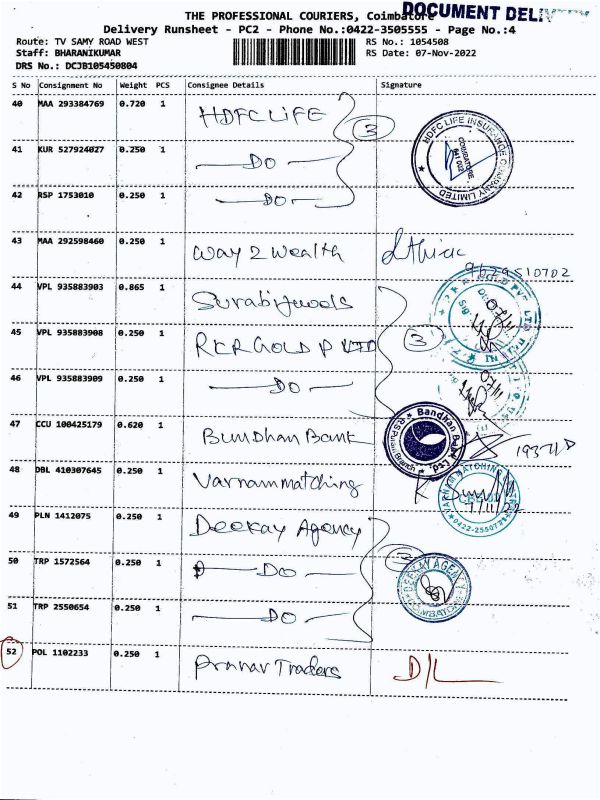 THE PROFESSIONAL COURIERS, Coimbatore
DOCUMENT DELIVERY
Delivery Runsheet - PC2 - Phone No.:0422-3505555 - Page No.:4
Route: TV SAMY ROAD WEST
RS No.: 1054508
Staff: BHARANIKUMAR
RS Date: 07-Nov-2022
DRS No.: DCJB105450804
S No Consignment No Weight PCS Consignee Details Signature
40 MAA 293384769 0.720 1 HDFC LIFE
3
HDFC LIFE INSURANCE COMPANY LIMITED
COIMBATORE
641 002
41 KUR 527924027 0.250 1 DO
42 RSP 1753010 0.250 1 DO
43 MAA 292598460 0.250 1 Way 2 Wealth
9629510702
44 VPL 935883903 0.865 1 Surabi Jewels
45 VPL 935883908 0.250 1 RKR GOLD P LTD
3
07/11
46 VPL 935883909 0.250 1 DO
07/11
47 CCU 100425179 0.620 1 Bundhan Bank
Bandhan Bank Ltd.
RSPuram Branch
48 DBL 410307645 0.250 1 Varnam matching
VARNAM MATCHING
7/11/22
49 PLN 1412075 0.250 1 Deekay Agency
50 TRP 1572564 0.250 1 DO
3
DEEKAY AGENCY
COIMBATORE
51 TRP 2550654 0.250 1 DO
52 POL 1102233 0.250 1 Pranav Traders D/L